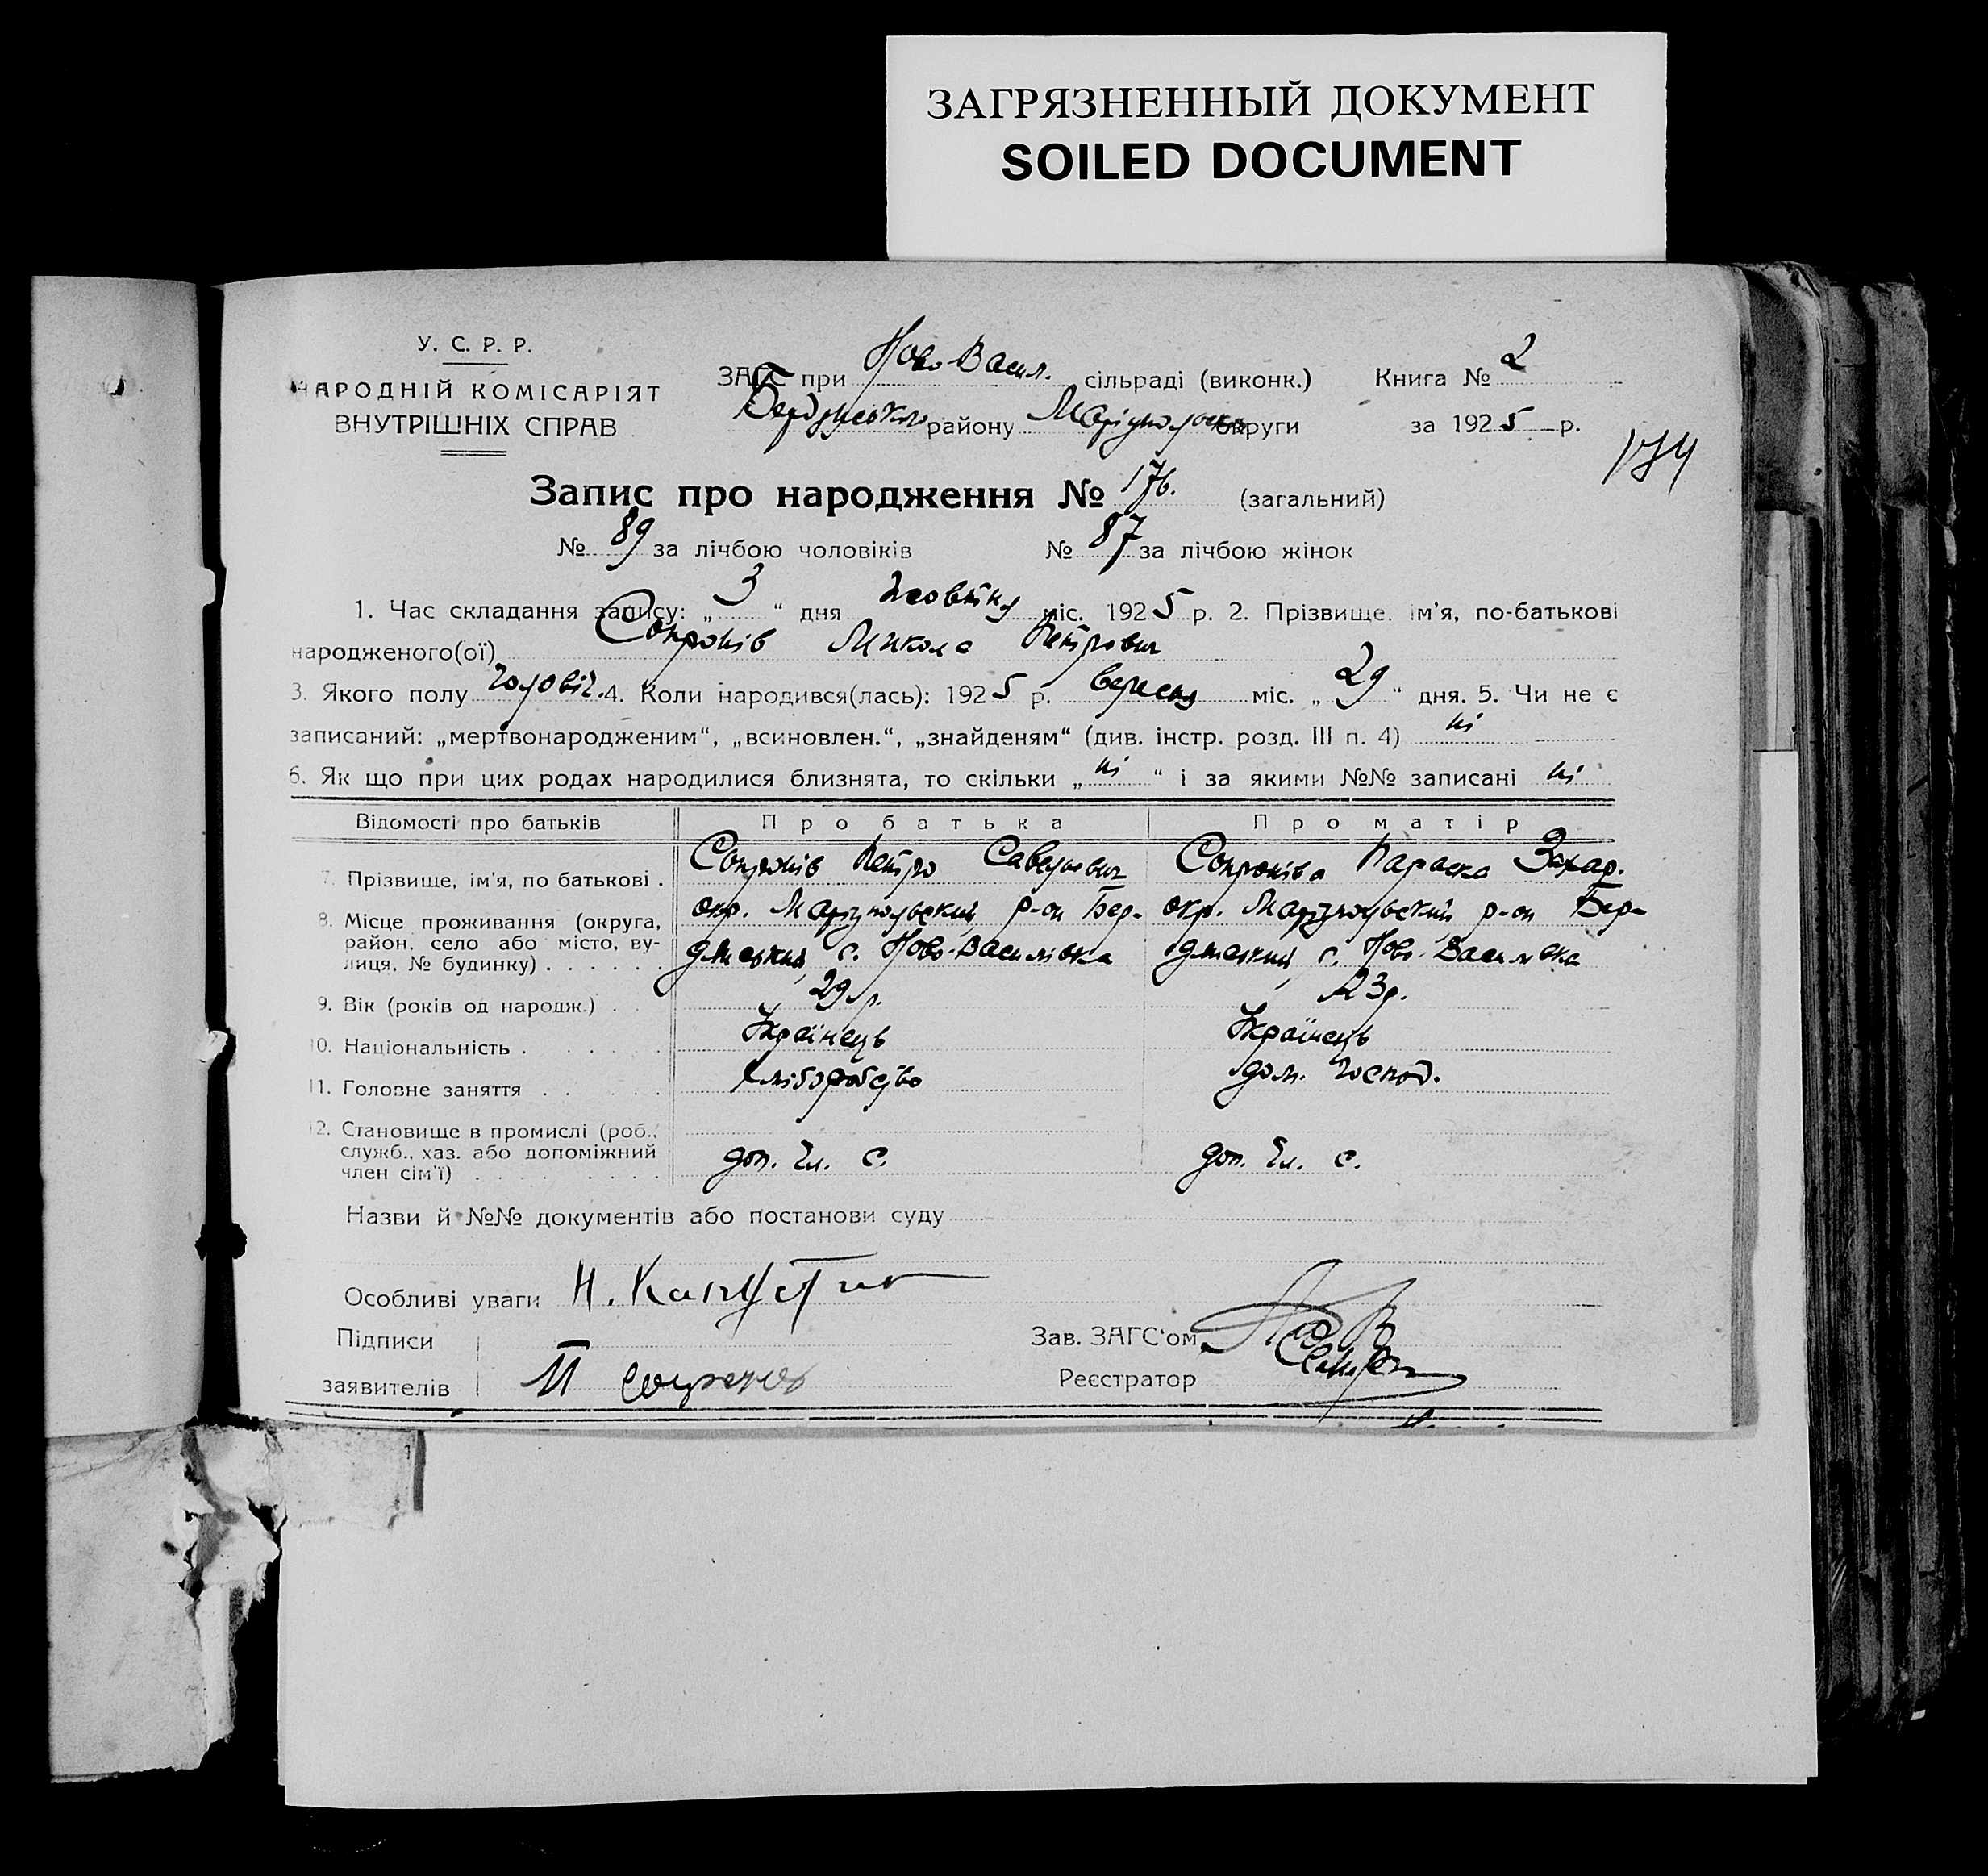 ЗАГРЯЗНЕННЫЙ ДОКУМЕНТ
SOILED DOCUMENT
У. С. Р. Р.
НАРОДНІЙ КОМІСАРІЯТ
ВНУТРІШНІХ СПРАВ
ЗАГС при Ново-Васил. сільраді (виконк.) Книга № 2
Бердянського району Маріупольськ округи за 1925 р.
174
Запис про народження № 176. (загальний)
№ 89 за лічбою чоловіків № 87 за лічбою жінок
1. Час складання запису: „ 3 “ дня жовтня міс. 1925 р. 2. Прізвище, ім'я, по-батькові
народженого(ої) Сопронів Микола Петрович
3. Якого полу чоловіч. 4. Коли народився(лась): 1925 р. вересня міс. „ 29 “ дня. 5. Чи не є
записаний: „мертвонародженим“, „всиновлен.“, „знайденям“ (див. інстр. розд. III п. 4) ні
6. Як що при цих родах народилися близнята, то скільки „ ні “ і за якими №№ записані ні
Відомості про батьків Про батька Про матір
7. Прізвище, ім'я, по батькові . Сопронів Петро Савельович Сопроніва Параска Захар.
8. Місце проживання (округа, район, село або місто, вулиця, № будинку) . . . . . . окр. Маріупольський р-он Бердянський с. Ново-Василівка окр. Маріупольський р-он Бердянський с. Ново-Василівка
9. Вік (років од народж.) . . 29 р. 23 р.
10. Національність . Українець Українець
11. Головне заняття . . хліборобство дом. господ.
12. Становище в промислі (роб., служб., хаз. або допоміжний член сім'ї) . . . доп. чл. с. доп. чл. с.
Назви й №№ документів або постанови суду
Особливі уваги Н.
Підписи
заявителів П
Зав. ЗАГС'ом
Реєстратор